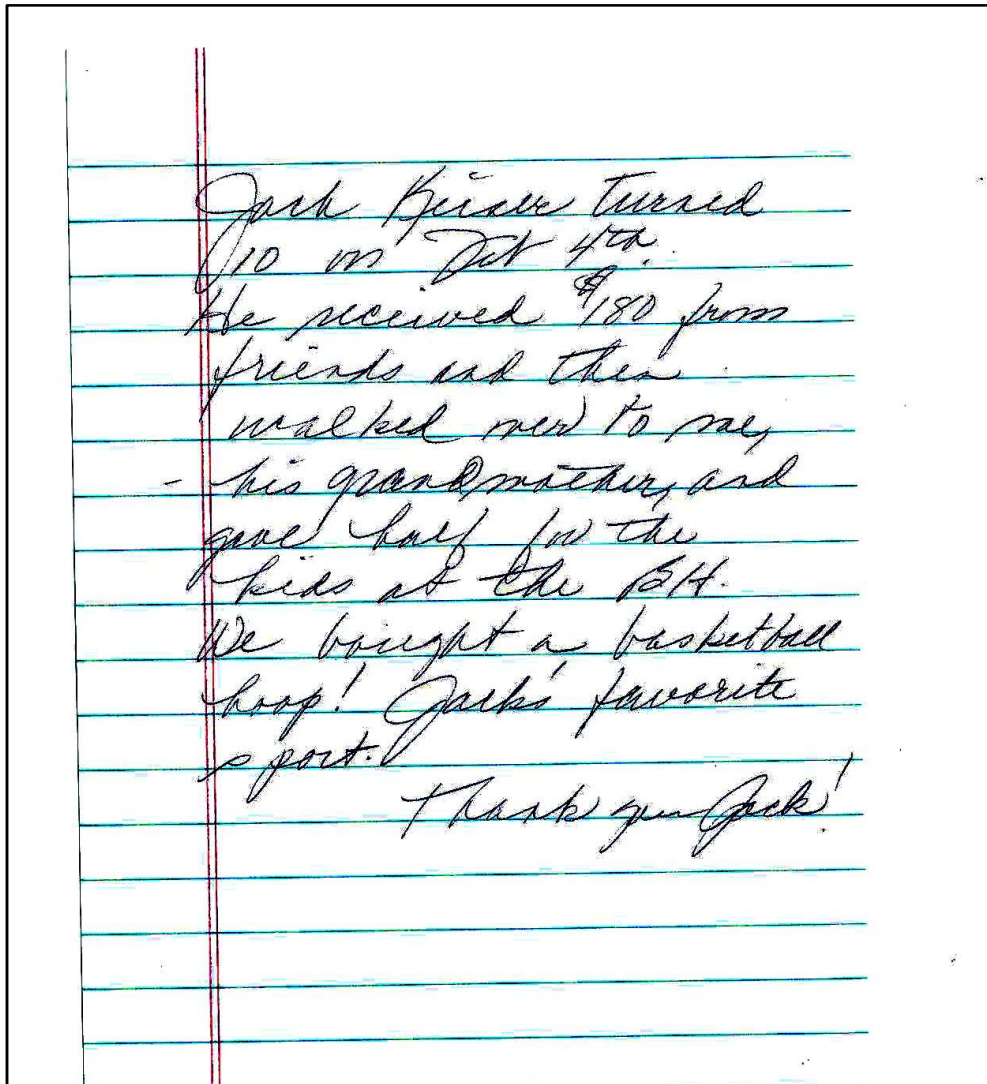 Jack turned
10 on 4th.
He received $180 from
friends and then
walked over to me,
- his grandmother, and
gave half for the
kids at the BH.
We bought a basketball
hoop! Jack's favorite
sport.
Thank you Jack!